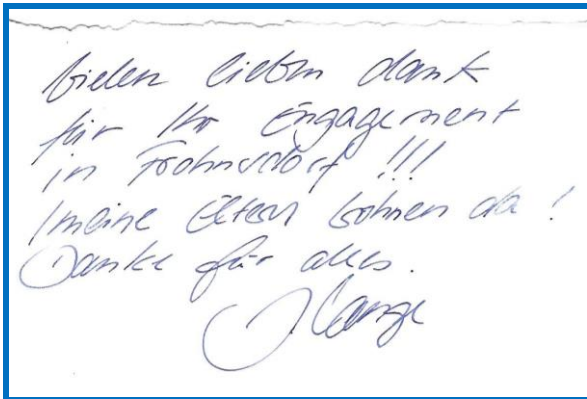 Vielen lieben dank
für Ihr Engagement
in Frohnsdorf !!!
(meine Eltern wohnen da !
Danke für alles.
J. Lange